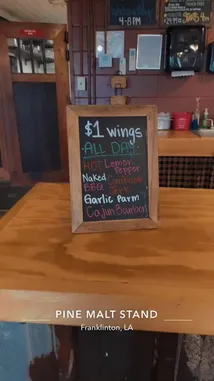 4-8PM
$1 wings
ALL DAY
HOT Lemon Pepper
Naked
BBQ Jerk
Garlic Parm
Cajun Bourbon
PINE MALT STAND
Franklinton, LA